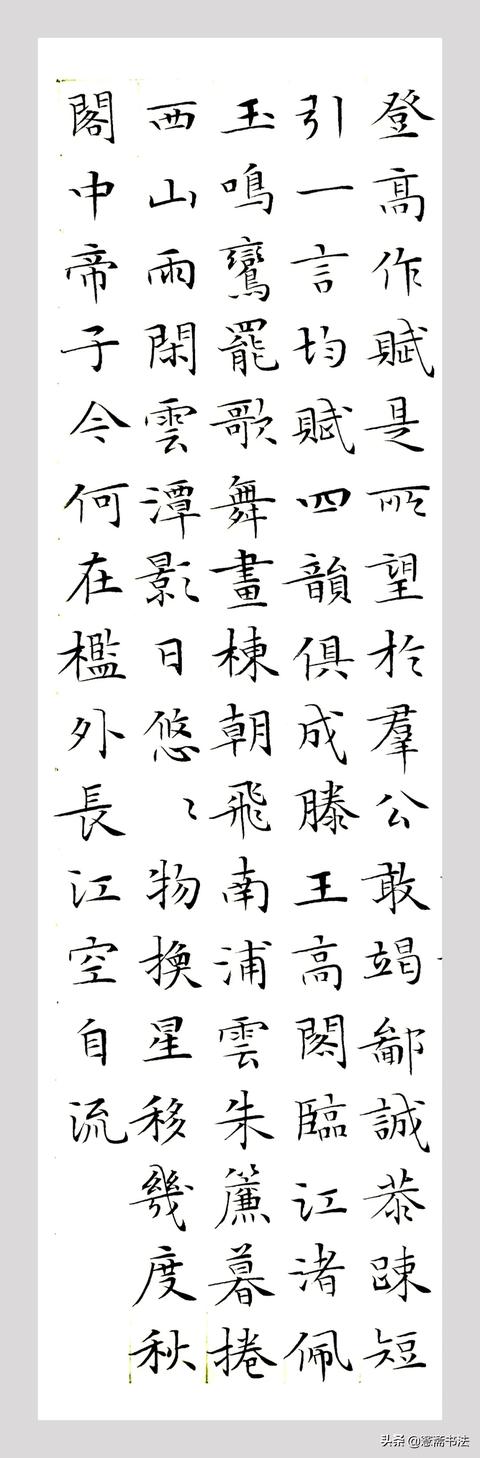 登高作賦是所望於羣公敢竭鄙誠恭疎短
引一言均賦四韻俱成滕王高閣臨江渚佩
玉鳴鸞罷歌舞畫棟朝飛南浦雲朱簾暮捲
西山雨閑雲潭影日悠〻物換星移幾度秋
閣中帝子今何在檻外長江空自流
头条 @憲斋书法